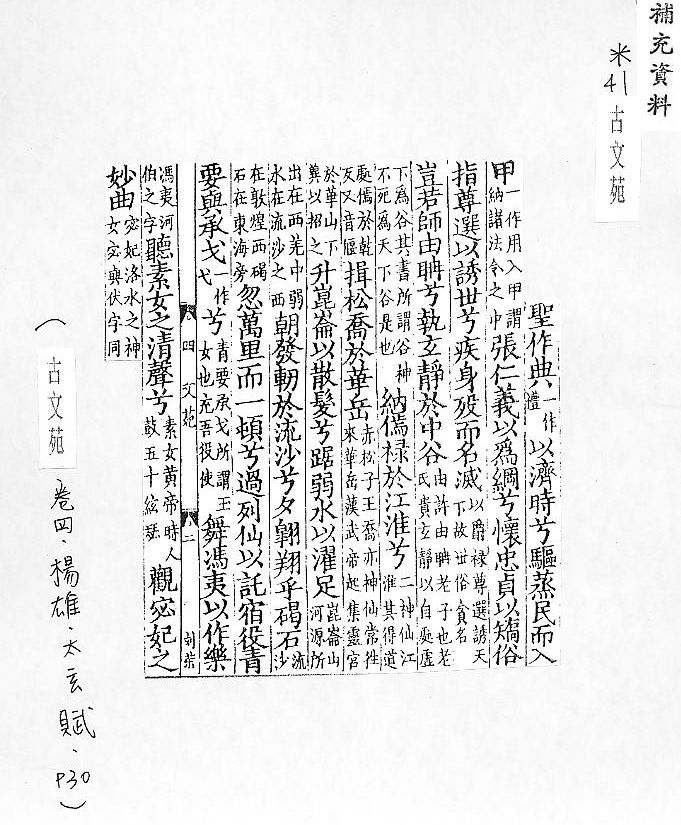 補充資料
米41古文苑
聖作典一作禮以濟時兮驅蒸民而入
甲一作用入甲謂納諸法令之中張仁義以爲綱兮懷忠貞以矯俗
指尊選以誘世兮疾身歿而名滅以爵禄尊選誘天下故世俗貪名
豈若師由聃兮執玄靜於中谷由許由聃老子也老氏貴玄靜以自處虛
下爲谷其書所謂谷神不死爲天下谷是也納傿禄於江淮兮二神仙江淮其得道
處傿於乾反又音偃揖松喬於華岳赤松子王喬亦神仙常徃來華岳漢武帝起集靈宮
於華山下冀以招之升崑崙以散髮兮踞弱水以濯足崑崙山河源所
出在西羌中弱水在流沙之西朝發軔於流沙兮夕翺翔乎碣石流沙
在敦煌西碣石在東海旁忽萬里而一頓兮過列仙以託宿役青
要與承戈一作弋兮青要承戈所謂玉女也充吾役使舞馮夷以作樂
四文苑 二
馮夷河伯之字聽素女之清聲兮素女黄帝時人鼓五十絃瑟觀宓妃之
妙曲宓妃洛水之神女宓與伏字同
(古文苑·卷四·楊雄·太玄賦·P30)